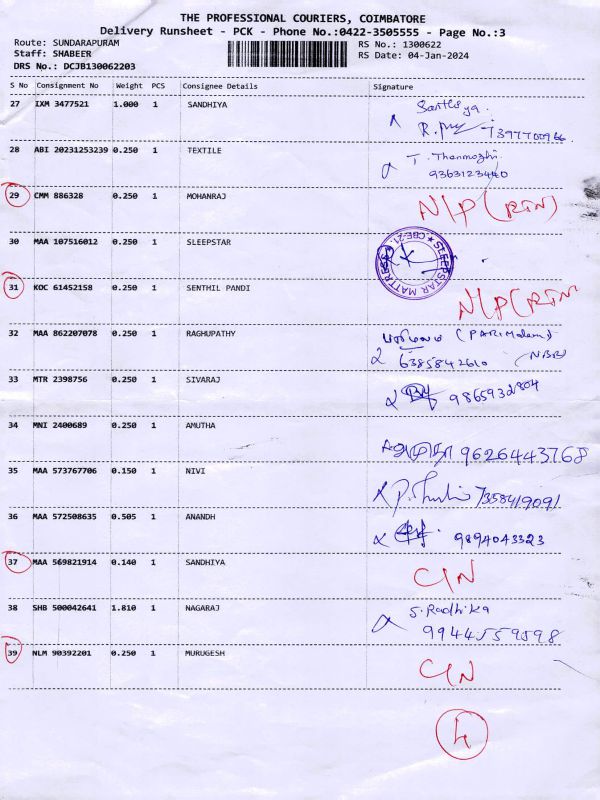 THE PROFESSIONAL COURIERS, COIMBATORE
Delivery Runsheet - PCK - Phone No.:0422-3505555 - Page No.:3
Route: SUNDARAPURAM
RS No.: 1300622
Staff: SHABEER
RS Date: 04-Jan-2024
DRS No.: DCJB130062203
S No Consignment No Weight PCS Consignee Details Signature
27 IXM 3477521 1.000 1 SANDHIYA
7397700966
28 ABI 20231253239 0.250 1 TEXTILE T. Thenmozhi
9363123440
29 CMM 886328 0.250 1 MOHANRAJ N/P (RTN)
30 MAA 107516012 0.250 1 SLEEPSTAR SLEEPSTAR MATTRESS CBE-21.
31 KOC 61452158 0.250 1 SENTHIL PANDI N/P (RTN
32 MAA 862207078 0.250 1 RAGHUPATHY
6385842610 (NBR)
33 MTR 2398756 0.250 1 SIVARAJ 9865932804
34 MNI 2400689 0.250 1 AMUTHA அமுதா 9626443768
35 MAA 573767706 0.150 1 NIVI 7358419091
36 MAA 572508635 0.505 1 ANANDH 9894043323
37 MAA 569821914 0.140 1 SANDHIYA C/N
38 SHB 500042641 1.810 1 NAGARAJ S. Radhika
9944559598
39 NLM 90392201 0.250 1 MURUGESH C/N